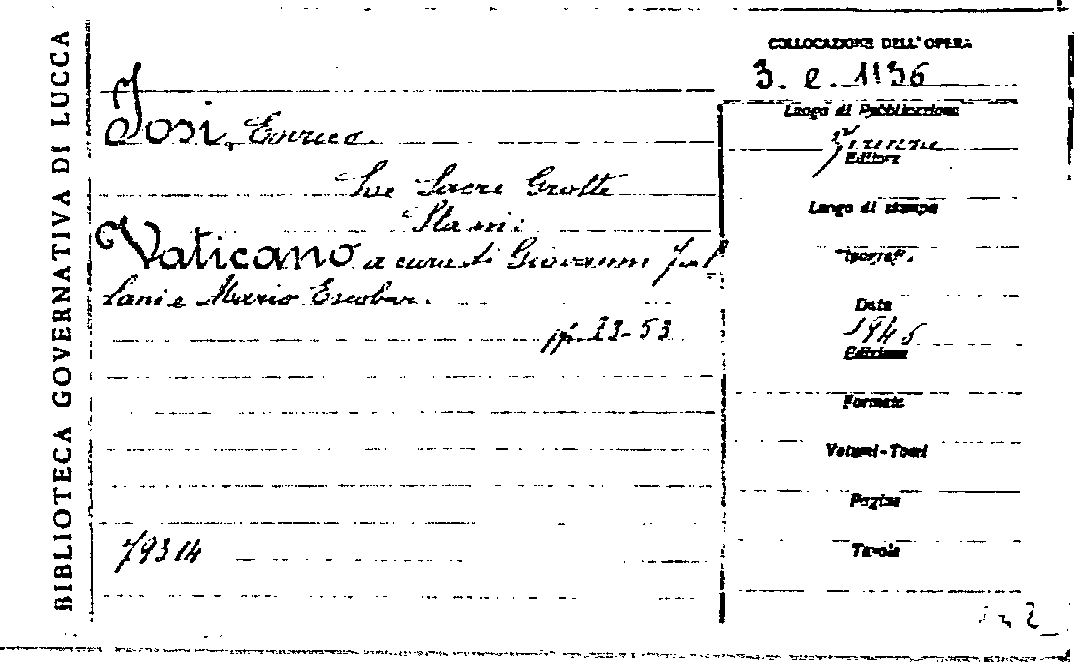 BIBLIOTECA GOVERNATIVA DI LUCCA
COLLOCAZIONE DELL'OPERA
3. e. 1136
Josi, Enrico.
Le Sacre Grotte
Sta in:
Vaticano a cura di Giovanni
lani e Mario Escobar.
pp. 23-53
79314
Luogo di Pubblicazione
Firenze
Editore
Luogo di stampa
Tipograf.
Data
1946
Edizione
Formato
Volumi-Tomi
Pagine
Tavole